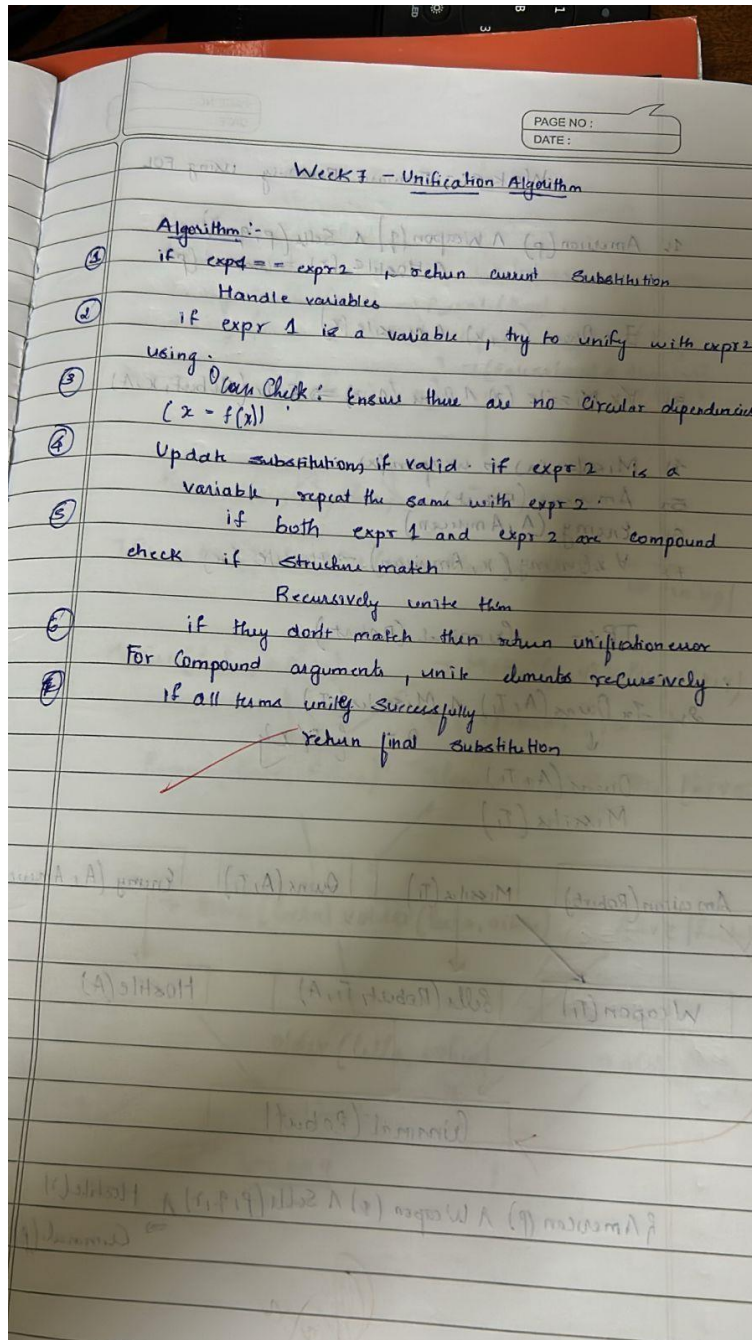 PAGE NO :
DATE :
Week 7 - Unification Algorithm
Algorithm :-
① if expr1 == expr2 , return current substitution
Handle variables
② if expr 1 is a variable , try to unify with expr2
using .
③ Occurs Check : Ensure there are no circular dependencies
( x - f(x) )
④ Update substitutions if valid . if expr 2 is a
variable , repeat the same with expr 2 .
⑤ if both expr 1 and expr 2 are compound
check if structure match
Recursively unite them
⑥ if they don't match then return unification error
For Compound arguments , unite elements recursively .
⑦ if all terms unify successfully
return final substitution